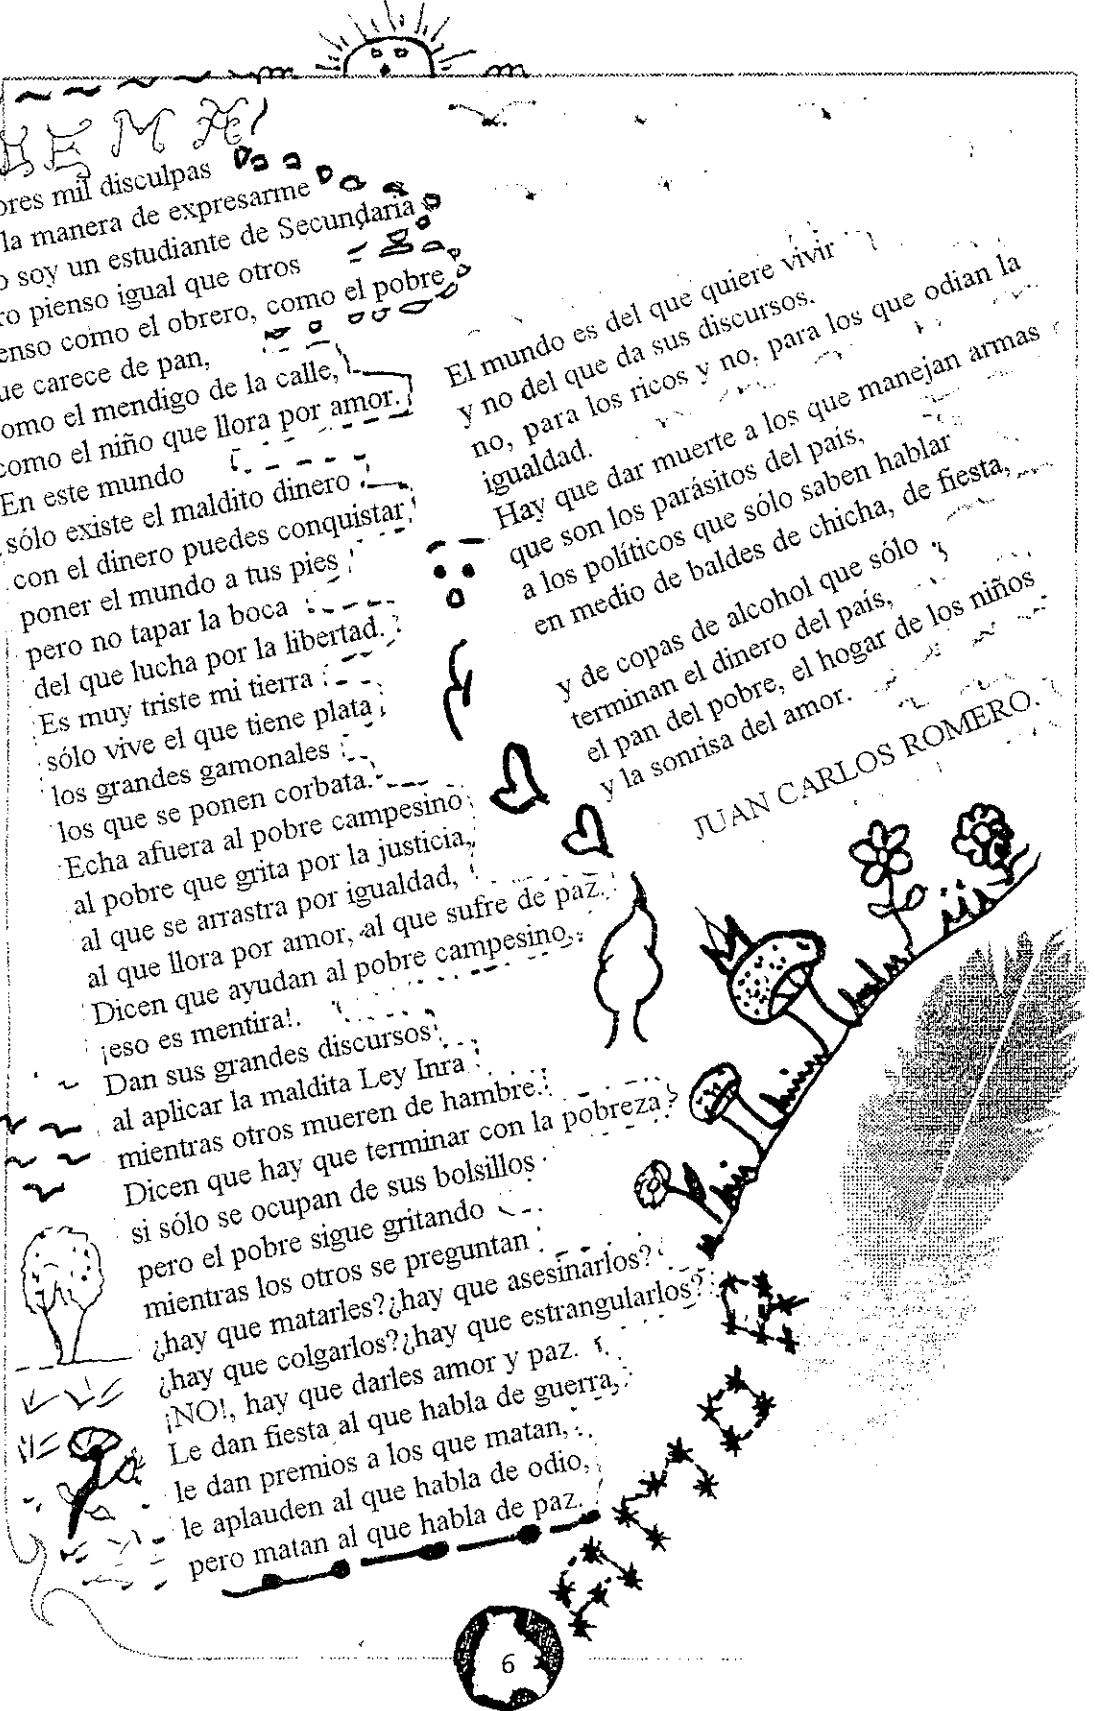 EMA
mil disculpas
la manera de expresarme
soy un estudiante de Secundaria
pienso igual que otros
como el obrero, como el pobre
carece de pan,
como el mendigo de la calle,
como el niño que llora por amor.
En este mundo
sólo existe el maldito dinero
con el dinero puedes conquistar
poner el mundo a tus pies
pero no tapar la boca
del que lucha por la libertad.
Es muy triste mi tierra
sólo vive el que tiene plata
los grandes gamonales
los que se ponen corbata.
Echa afuera al pobre campesino
al pobre que grita por la justicia,
al que se arrastra por igualdad,
al que llora por amor, al que sufre de paz.
Dicen que ayudan al pobre campesino,
¡eso es mentira!.
Dan sus grandes discursos
al aplicar la maldita Ley Inra
mientras otros mueren de hambre.
Dicen que hay que terminar con la pobreza
si sólo se ocupan de sus bolsillos
pero el pobre sigue gritando
mientras los otros se preguntan
¿hay que matarles?¿hay que asesinarlos?
¿hay que colgarlos?¿hay que estrangularlos?
¡NO!, hay que darles amor y paz.
Le dan fiesta al que habla de guerra,
le dan premios a los que matan,
le aplauden al que habla de odio,
pero matan al que habla de paz.
El mundo es del que quiere vivir
y no del que da sus discursos.
no, para los ricos y no, para los que odian la
igualdad.
Hay que dar muerte a los que manejan armas
que son los parásitos del país,
a los políticos que sólo saben hablar
en medio de baldes de chicha, de fiesta,
y de copas de alcohol que sólo
terminan el dinero del país,
el pan del pobre, el hogar de los niños
y la sonrisa del amor.
JUAN CARLOS ROMERO.
6